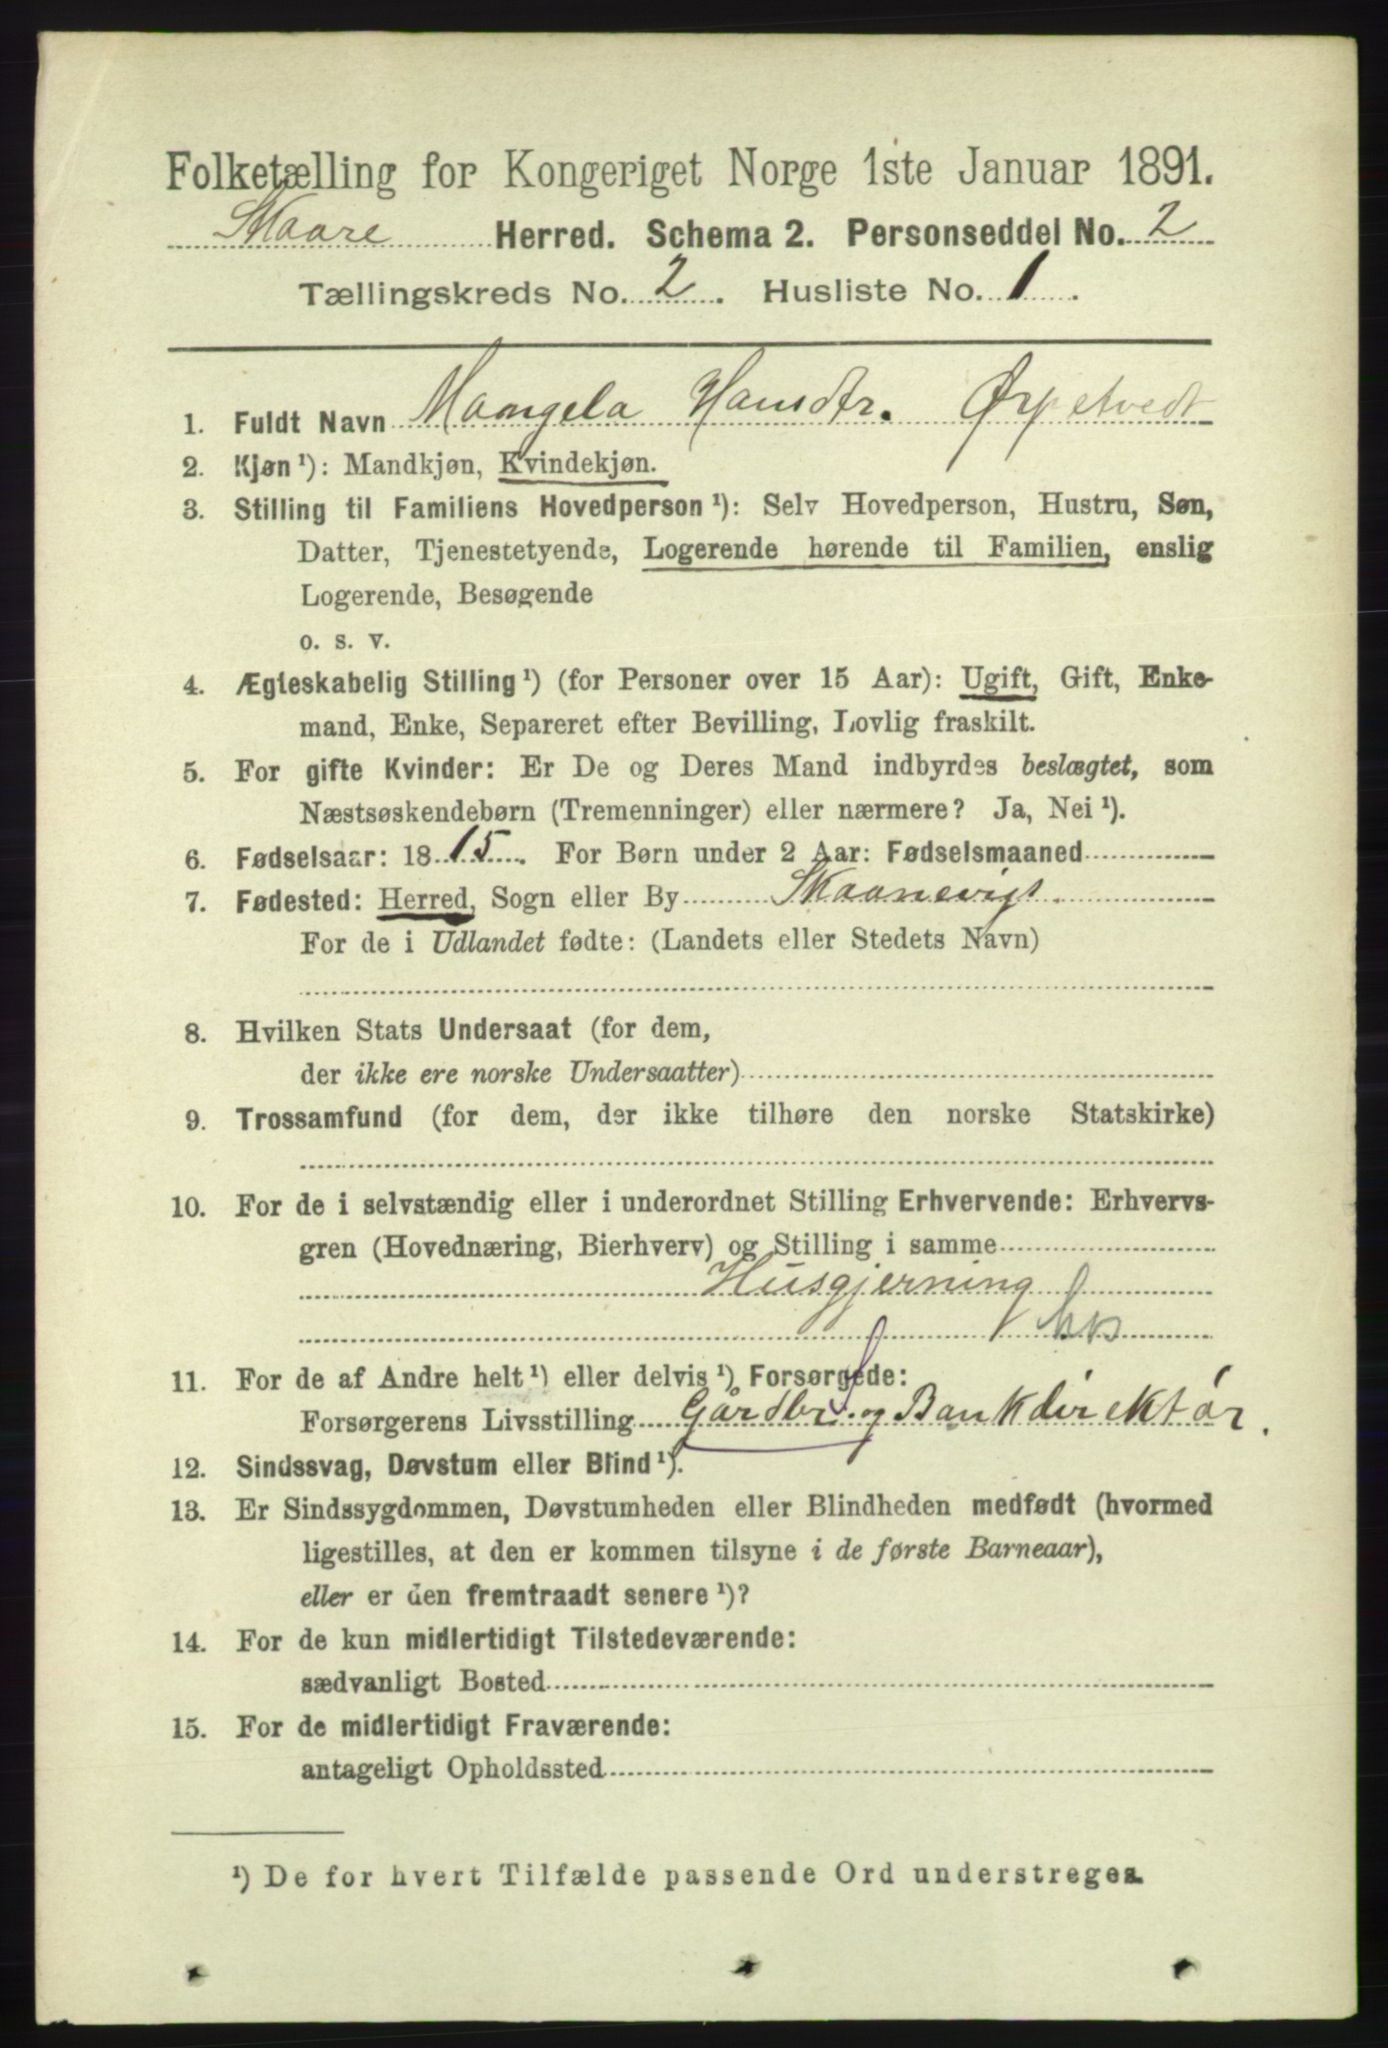 Folketælling for Kongeriget Norge 1ste Januar 1891.
Skaare Herred. Schema 2. Personseddel No. 2
Tællingskreds No. 2. Husliste No. 1.
1. Fuldt Navn Mangela Hansdtr. Ørpetvedt
2. Kjøn ¹): Mandkjøn, Kvindekjøn.
3. Stilling til Familiens Hovedperson ¹): Selv Hovedperson, Hustru, Søn,
Datter, Tjenestetyende, Logerende hørende til Familien, enslig
Logerende, Besøgende
o. s. v.
4. Ægteskabelig Stilling ¹) (for Personer over 15 Aar): Ugift, Gift, Enke-
mand, Enke, Separeret efter Bevilling, Lovlig fraskilt.
5. For gifte Kvinder: Er De og Deres Mand indbyrdes beslægtet, som
Næstsøskendebørn (Tremenninger) eller nærmere? Ja, Nei ¹).
6. Fødselsaar: 1815. For Børn under 2 Aar: Fødselsmaaned
7. Fødested: Herred, Sogn eller By Skaanevigs.
For de i Udlandet fødte: (Landets eller Stedets Navn)
8. Hvilken Stats Undersaat (for dem,
der ikke ere norske Undersaatter)
9. Trossamfund (for dem, der ikke tilhøre den norske Statskirke)
10. For de i selvstændig eller i underordnet Stilling Erhvervende: Erhvervs-
gren (Hovednæring, Bierhverv) og Stilling i samme
Husgjerning
11. For de af Andre helt ¹) eller delvis ¹) Forsørgede:
Forsørgerens Livsstilling Gårdbr. og Bankdirektør.
12. Sindssvag, Døvstum eller Blind ¹).
13. Er Sindssygdommen, Døvstumheden eller Blindheden medfødt (hvormed
ligestilles, at den er kommen tilsyne i de første Barneaar),
eller er den fremtraadt senere ¹)?
14. For de kun midlertidigt Tilstedeværende:
sædvanligt Bosted
15. For de midlertidigt Fraværende:
antageligt Opholdssted
¹) De for hvert Tilfælde passende Ord understreges.